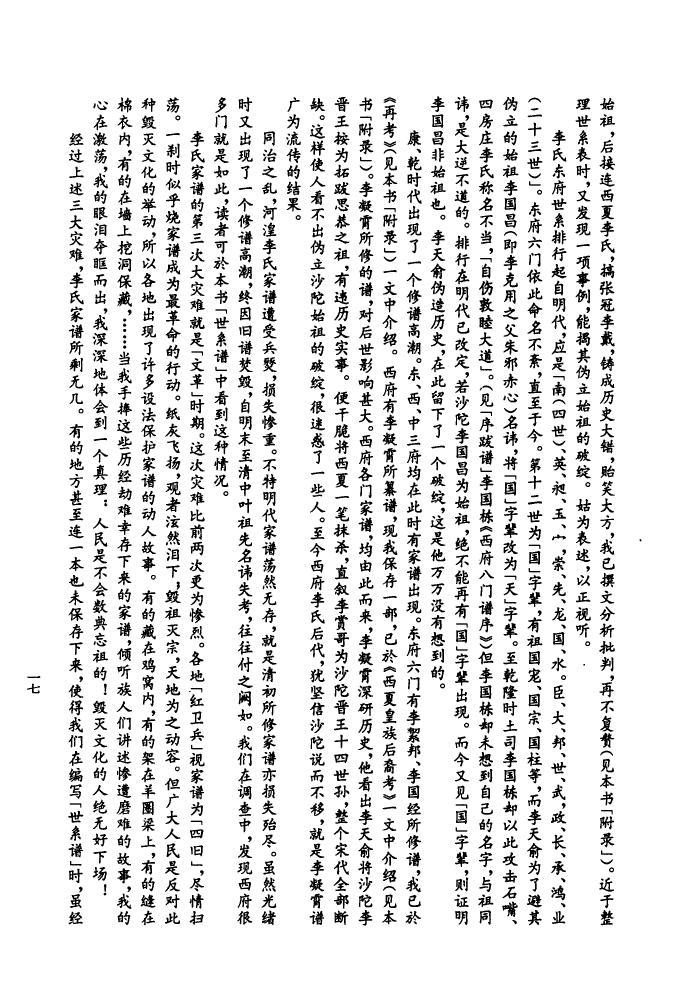 始祖，后接连西夏李氏，搞张冠李戴，铸成历史大错，贻笑大方，我已撰文分析批判，再不复赘（见本书「附录」）。近于整
理世系表时，又发现一项事例，能揭其伪立始祖的破绽。姑为表述，以正视听。
李氏东府世系排行起自明代，应是「南（四世）、英、昶、玉、宀、崇、先、龙、国、水。臣、大、邦、世、武，政、长、承、鸿、业
（二十三世）」。东府六门依此命名不紊，直至于今。第十二世为「国」字辈，有祖国宠、国宗、国柱等，而李天俞为了避其
伪立的始祖李国昌（即李克用之父朱邪赤心）名讳，将「国」字辈改为「天」字辈。至乾隆时土司李国栋却以此攻击石嘴、
四房庄李氏称名不当，「自伤敦睦大道」。（见「序跋谱」李国栋《西府八门谱序》）但李国栋却未想到自己的名字，与祖同
讳，是大逆不道的。排行在明代已改定，若沙陀李国昌为始祖，绝不能再有「国」字辈出现。而今又见「国」字辈，则证明
李国昌非始祖也。李天俞伪造历史，在此留下了一个破绽，这是他万万没有想到的。
康、乾时代出现了一个修谱高潮。东、西、中三府均在此时有家谱出现。东府六门有李絮邦、李国经所修谱，我已於
《再考》（见本书「附录」）一文中介绍。西府有李凝霄所纂谱，现我保存一部，已於《西夏皇族后裔考》一文中介绍（见本
书「附录」）。李凝霄所修的谱，对后世影响甚大。西府各门家谱，均由此而来，李凝霄深研历史，他看出李天俞将沙陀李
晋王按为拓跋思恭之祖，有违历史实事。便干脆将西夏一笔抹杀，直叙李赏哥为沙陀晋王十四世孙，整个宋代全部断
缺。这样使人看不出伪立沙陀始祖的破绽，很迷惑了一些人。至今西府李氏后代，犹坚信沙陀说而不移，就是李凝霄谱
广为流传的结果。
同治之乱，河湟李氏家谱遭受兵燹，损失惨重。不特明代家谱荡然无存，就是清初所修家谱亦损失殆尽。虽然光绪
时又出现了一个修谱高潮，终因旧谱焚毁，自明末至清中叶祖先名讳失考，往往付之阙如。我们在调查中，发现西府很
多门就是如此，读者可於本书「世系谱」中看到这种情况。
李氏家谱的第三次大灾难就是「文革」时期。这次灾难比前两次更为惨烈。各地「红卫兵」视家谱为「四旧」，尽情扫
荡。一刹时似乎烧家谱成为最革命的行动。纸灰飞扬，观者泫然泪下，毁祖灭宗，天地为之动容。但广大人民是反对此
种毁灭文化的举动，所以各地出现了许多设法保护家谱的动人故事。有的藏在鸡窝内，有的架在羊圈梁上，有的缝在
棉衣内，有的在墙上挖洞保藏，……当我手捧这些历经劫难幸存下来的家谱，倾听族人们讲述惨遭磨难的故事，我的
心在激荡，我的眼泪夺眶而出，我深深地体会到一个真理：人民是不会数典忘祖的！毁灭文化的人绝无好下场！
经过上述三大灾难，李氏家谱所剩无几。有的地方甚至连一本也未保存下来，使得我们在编写「世系谱」时，虽经
一七